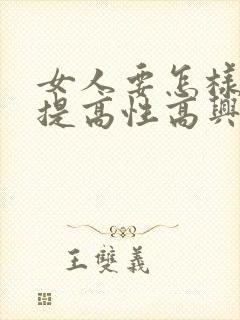 女人要怎樣
提高性高興
王雙義